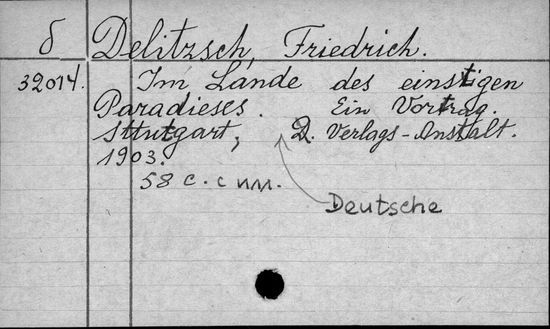 δ Delitzsch, Friedrich.
32014. Im Lande des einstigen
Paradieses. Ein Vortrag.
Stuttgart, D. Verlags-Anstalt.
1903.
58 с. с илл.
Deutsche